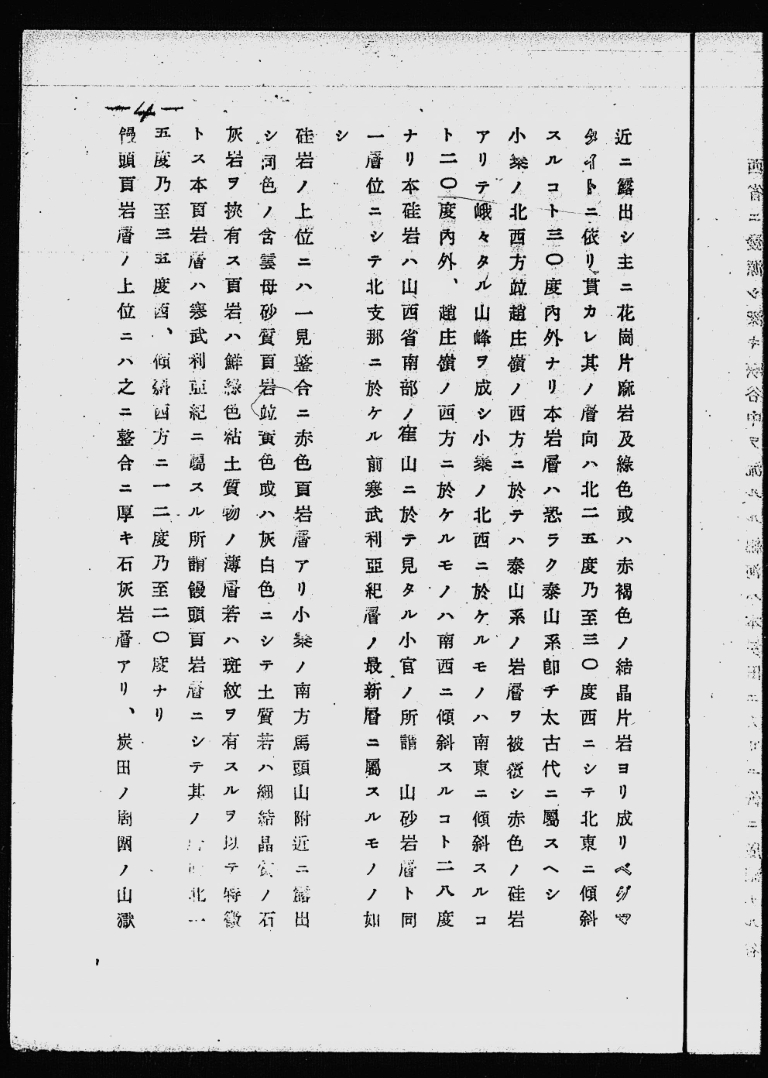 —4—
近ニ露出シ主ニ花崗片麻岩及綠色或ハ赤褐色ノ結晶片岩ヨリ成リペグマ
タイトニ依リ貫カレ其ノ層向ハ北二五度乃至三〇度西ニシテ北東ニ傾斜
スルコト三〇度內外ナリ本岩層ハ恐ラク泰山系卽チ太古代ニ屬スヘシ
小梁ノ北西方竝趙庄嶺ノ西方ニ於テハ泰山系ノ岩層ヲ被覆シ赤色ノ硅岩
アリテ峨々タル山峰ヲ成シ小梁ノ北西ニ於ケルモノハ南東ニ傾斜スルコ
ト二〇度內外、趙庄嶺ノ西方ニ於ケルモノハ南西ニ傾斜スルコト二八度
ナリ本硅岩ハ山西省南部ノ崔山ニ於テ見タル小官ノ所謂 山砂岩層ト同
一層位ニシテ北支那ニ於ケル前寒武利亞紀層ノ最新層ニ屬スルモノノ如
シ
硅岩ノ上位ニハ一見整合ニ赤色頁岩層アリ小梁ノ南方馬頭山附近ニ露出
シ同色ノ含雲母砂質頁岩竝黃色或ハ灰白色ニシテ土質若ハ細結晶質ノ石
灰岩ヲ挾有ス頁岩ハ鮮綠色粘土質物ノ薄層若ハ斑紋ヲ有スルヲ以テ特徵
トス本頁岩層ハ寒武利亞紀ニ屬スル所謂饅頭頁岩層ニシテ其ノ 北一
五度乃至三五度西、傾斜西方ニ一二度乃至二〇度ナリ
饅頭頁岩層ノ上位ニハ之ニ整合ニ厚キ石灰岩層アリ、炭田ノ周圍ノ山嶽